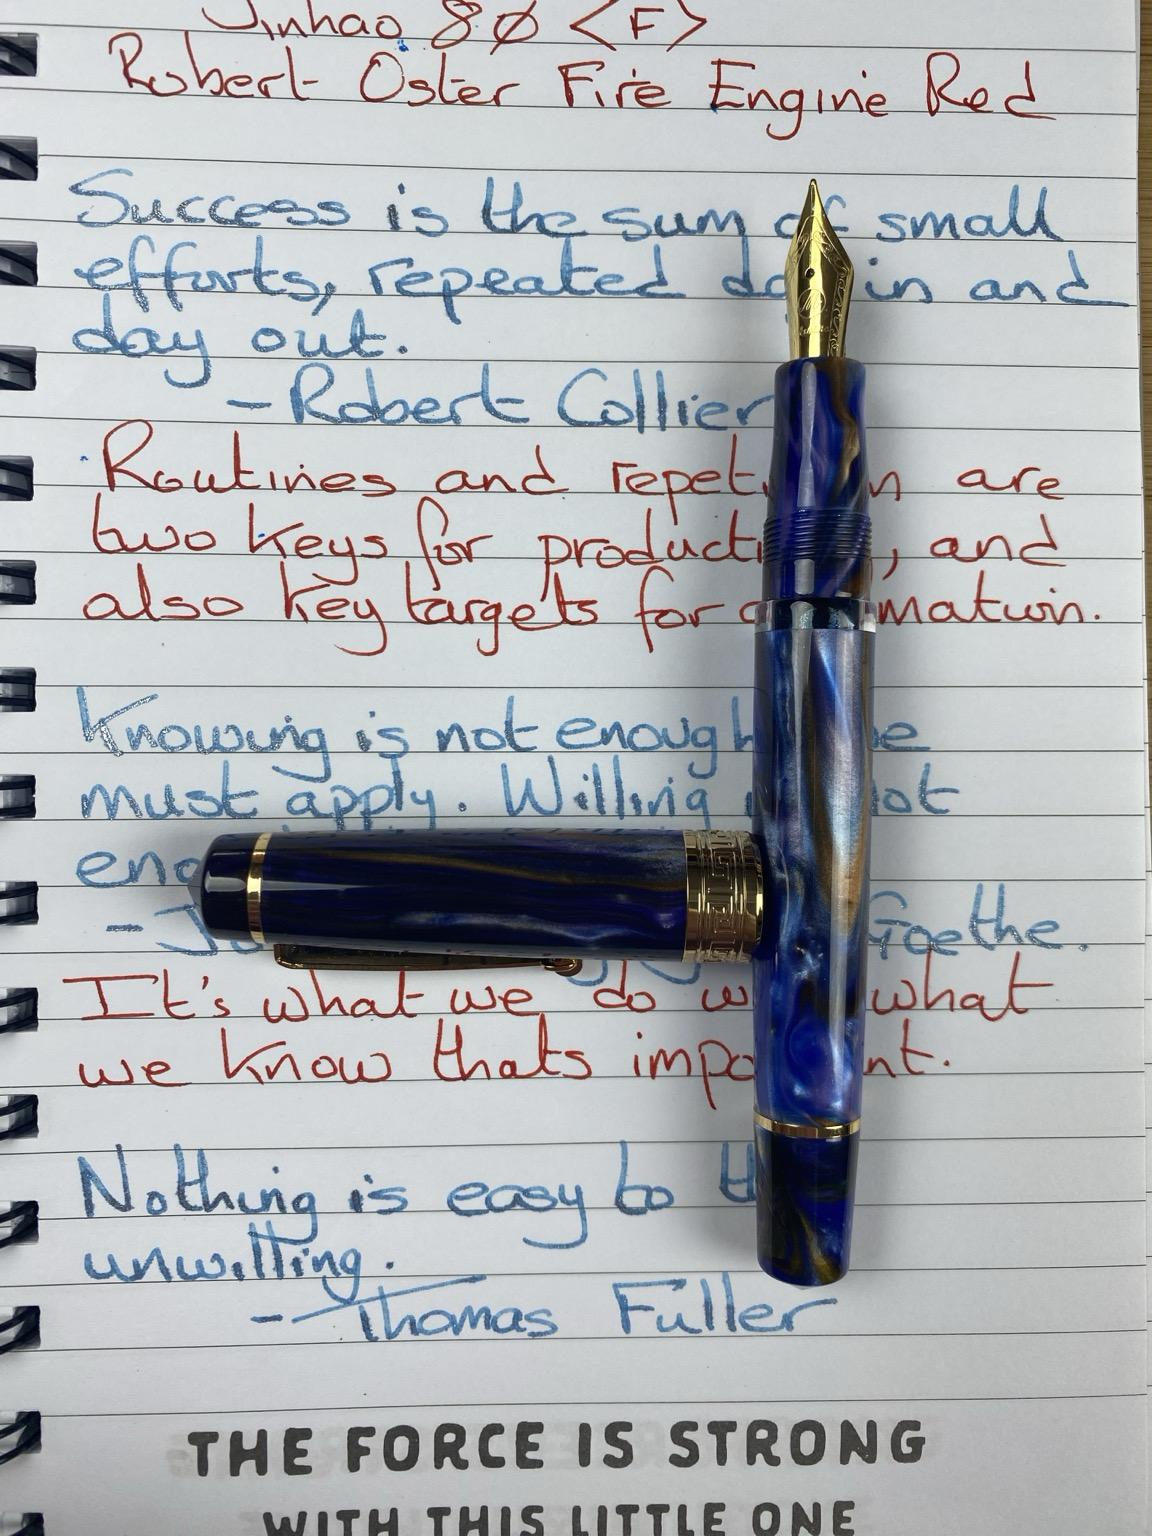 Jinhao 80 <F>
Robert Oster Fire Engine Red
Success is the sum of small
efforts, repeated in and
day out.
- Robert Collier
Routines and are
two keys for and
also key targets for
Knowing is not enough
must apply. Willing
- Goethe.
It's what we do what
we know thats
Nothing is easy to
unwilling.
- Thomas Fuller
THE FORCE IS STRONG
WITH THIS LITTLE ONE